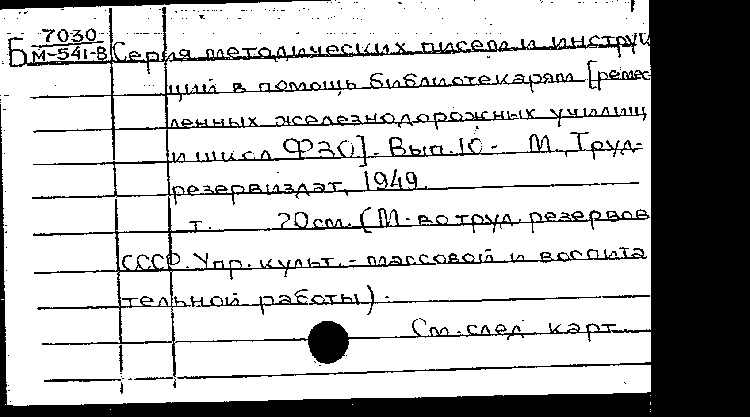 Б 7030
М-541-В Серия методических писем и инструк
ций в помощь библиотекарям [ремес
ленных железнодорожных училищ
и школ ФЗО]. Вып. 10 - М., Труд-
резервиздат, 1949.
т. 20 см. (М-во труд. резервов
СССР. Упр. культ.-массовой и воспита
тельной работы).
См. след. карт.